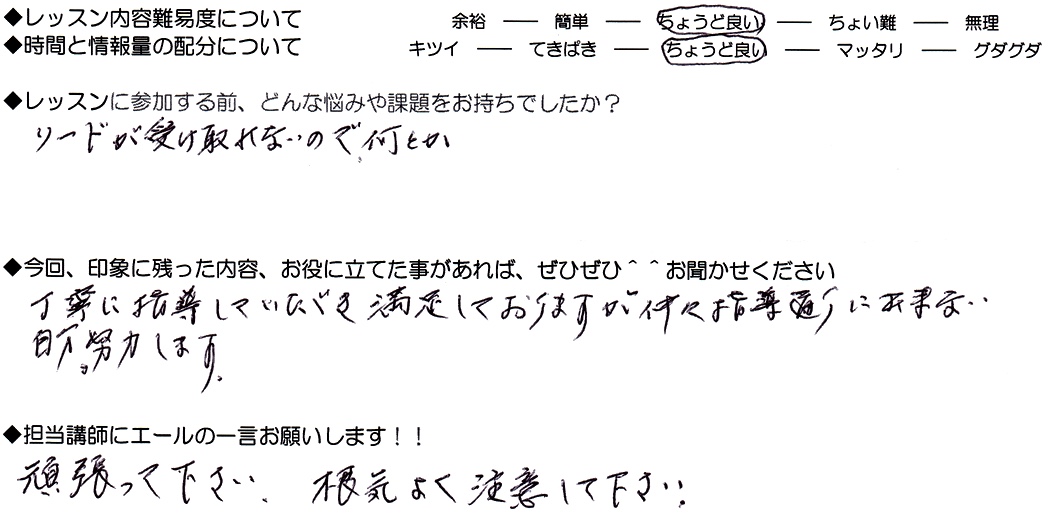 ◆レッスン内容難易度について 余裕 ― 簡単 ― ちょうど良い ― ちょい難 ― 無理
◆時間と情報量の配分について キツイ ― てきぱき ― ちょうど良い ― マッタリ ― グダグダ
◆レッスンに参加する前、どんな悩みや課題をお持ちでしたか？
リードが受け取れないので、何とか
◆今回、印象に残った内容、お役に立てた事があれば、ぜひぜひ＾＾お聞かせください
丁寧に指導していただき満足しておりますが仲々指導通りに出来ない
自分。努力します。
◆担当講師にエールの一言お願いします！！
頑張って下さい。根気よく注意して下さい。